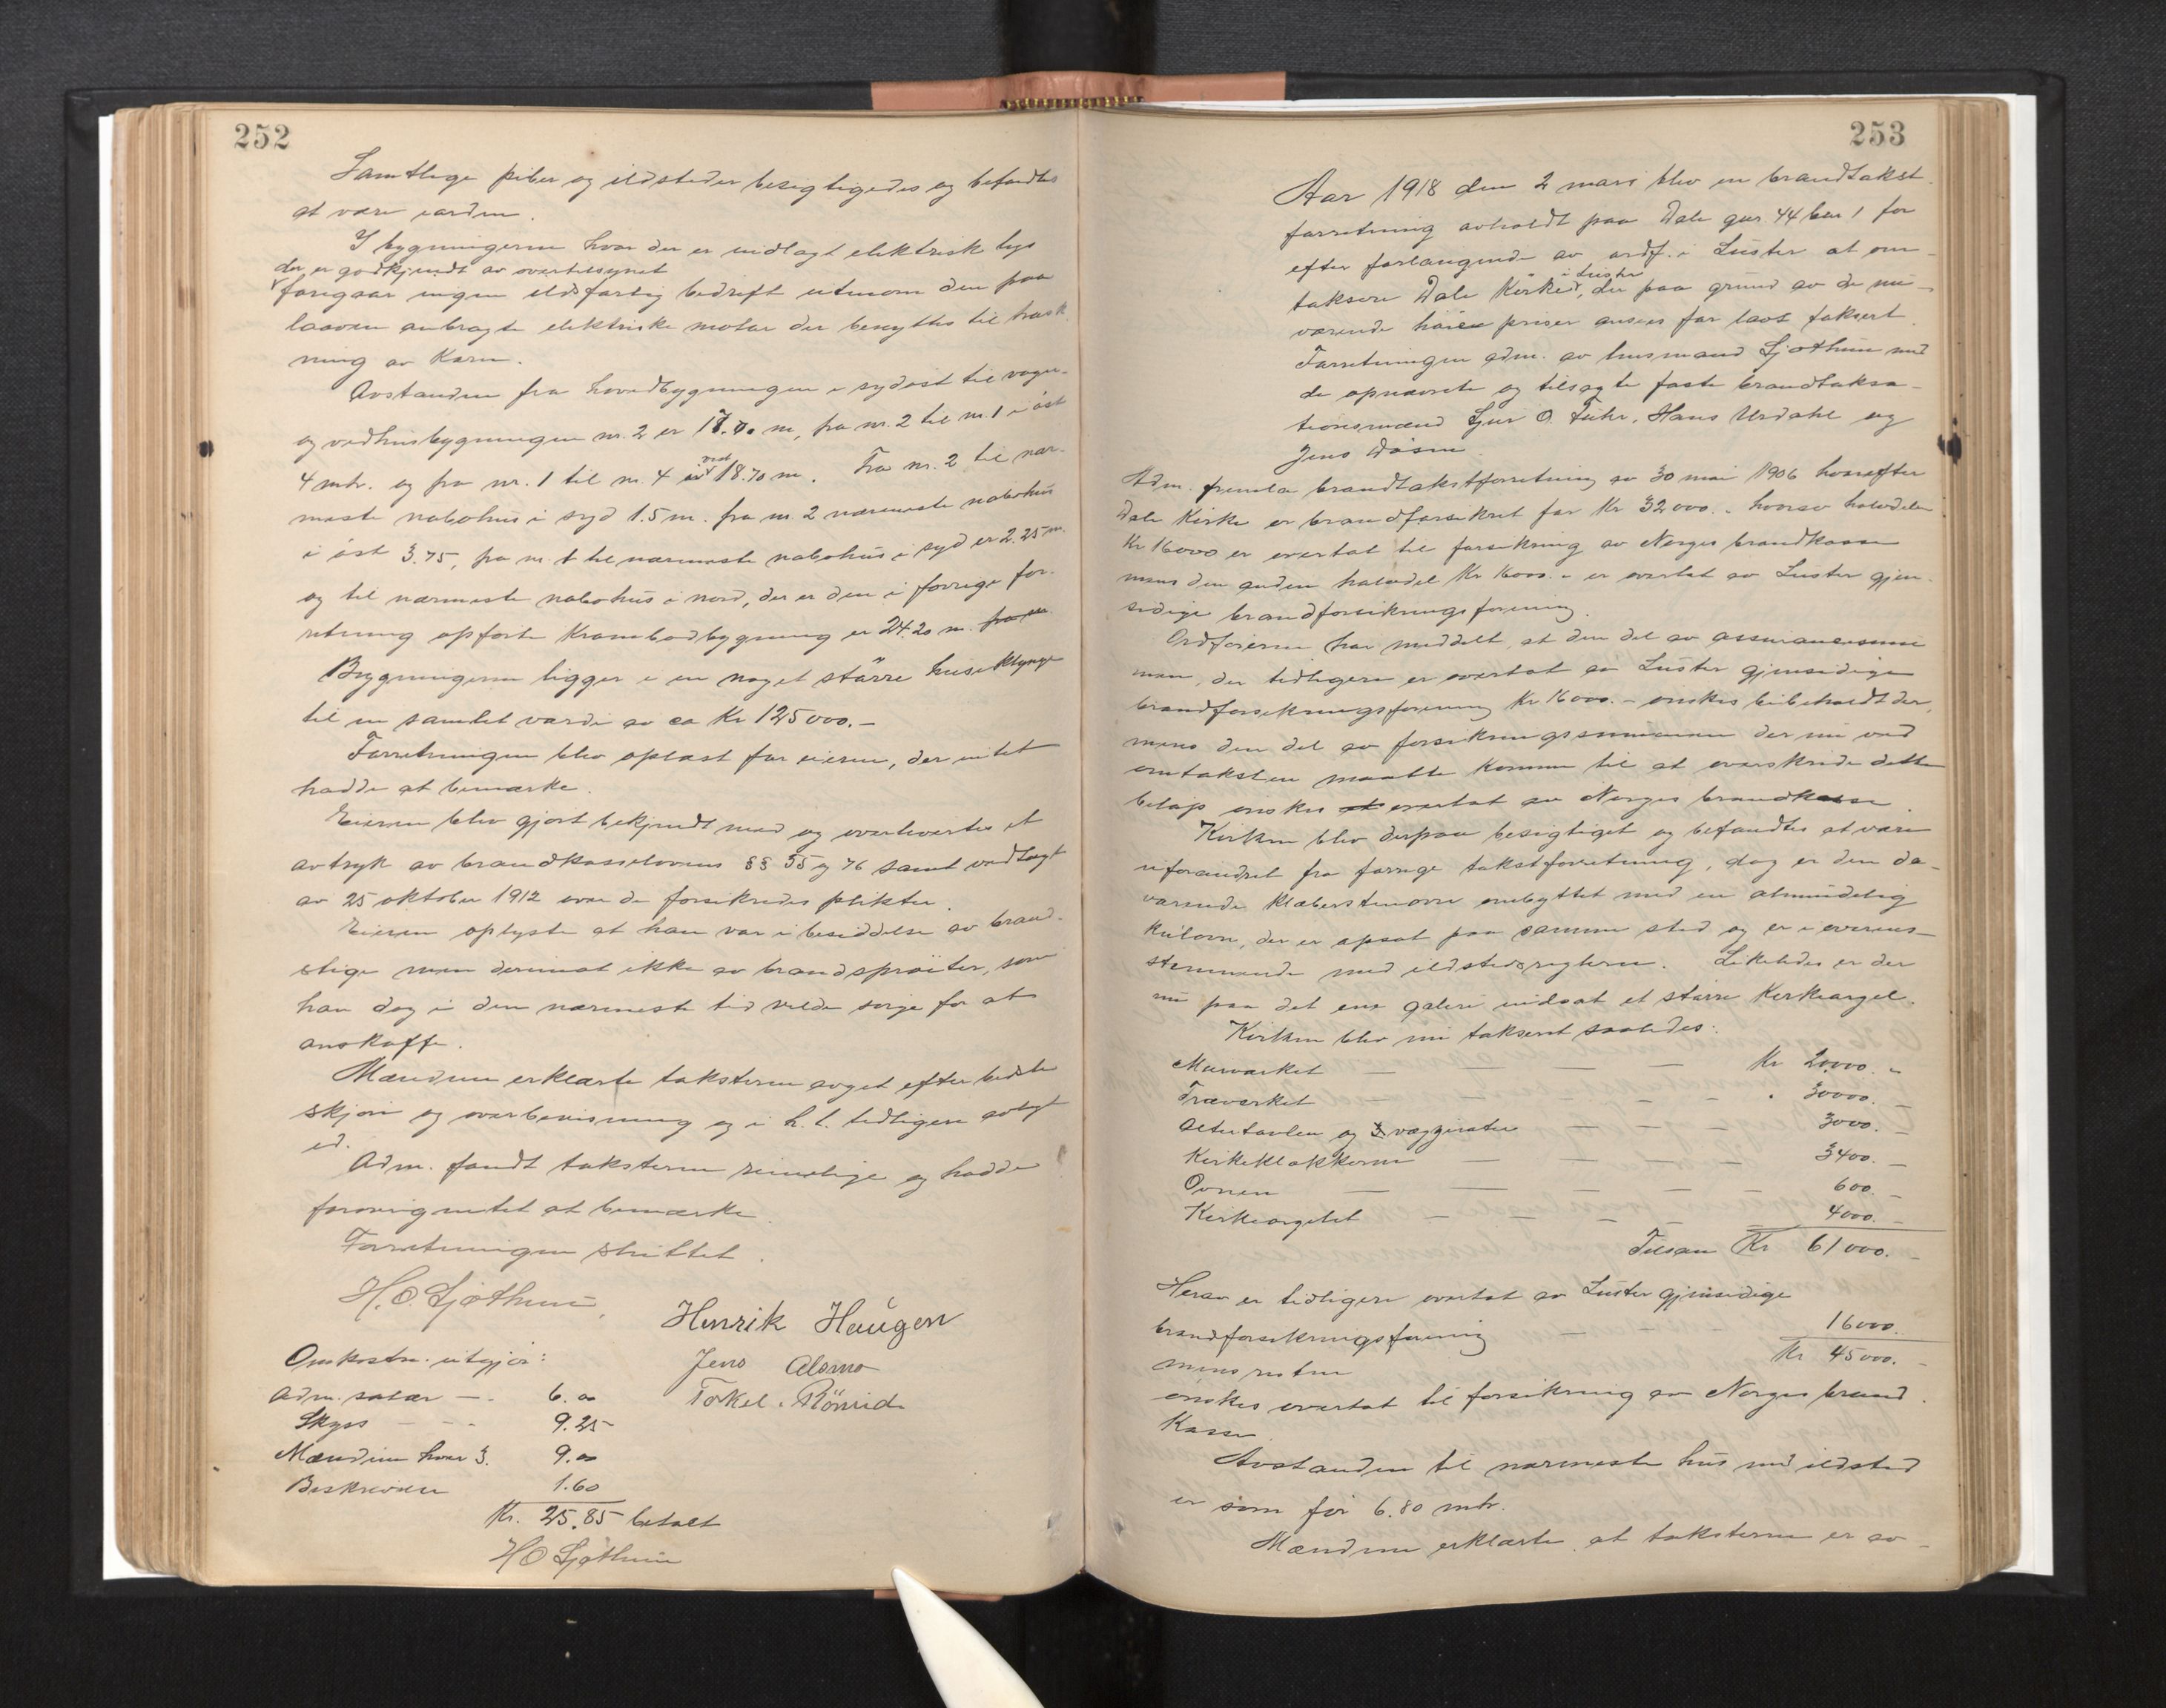 252
Samtlige piber og ildsteder besigtigedes og befandtes
at være iorden.
I bygningerne hvor der er indlagt elektrisk lys
der er godkjendt av overtilsynet
foregaar ingen ildsfarlig bedrift utenom den paa
laaven anbragte elektriske motor der benyttes til træsk
ning av Korn.
Avstanden fra hovedbygningen i sydøst til vogn-
og vedhusbygningen nr. 2 er m, fra nr. 2 til nr. 1 i øst
4 mtr. og fra nr. 1 til nr. 4 i vest 18.70 m. Fra nr. 2 til nær-
meste nabohus i syd 1.5 m. fra nr. 2 nærmeste nabohus
i øst 3.75, fra nr. 1 til nærmeste nabohus i syd er 2.25 m.
og til nærmeste nabohus i nord, der er den i forrige for-
retning opførte Krambodbygning er 24.20 m.
Bygningerne ligger i en noget større huseklynge
til en samlet værdi av ca Kr 125000.-
Forretningen blev oplæst for eieren, der intet
hadde at bemærke.
Eieren blev gjort bekjendt med og overleveres et
avtryk av brandkasselovens §§ 55 og 76 samt vedtægt
av 25 oktober 1912 over de forsikredes plikter.
Eieren oplyste at han var i besiddelse av brand-
stige men derimot ikke av brandsprøiter, som
han dog i den nærmeste tid vilde sørge for at
anskaffe.
Mændene erklærte taksterne avgit efter bedste
skjøn og overbevisning og i h. t. tidligere avlagt
ed.
Adm. fandt taksterne rimelige og hadde
forøvrig intet at bemærke.
Forretningen sluttet.
H.O. Sjøthun,
Henrik Haugen
Jens Alsmo
Torkel Rönnid
Omkostn. utgjør:
Adm. salær — - 6.00
Skyss — - - 9.25
Mændene hver 3. 9.00
Beskrivelse 1.60
Kr. 25.85 betalt
HO Sjøthun
253
Aar 1918 den 2 mars blev en brandtakst-
forretning avholdt paa Dale gnr. 44 bnr 1 for
efter forlangende av ordf. i Luster at om-
i Luster
taksere Dale Kirke, der paa grund av de nu-
værende høie priser ansees for lavt taksert.
Forretningen adm. av lensmand Sjøthun med
de opnævnte og tilsagte faste brandtaksa-
tionsmænd Sjur O. Fuhr, Hans Urdahl og
Jens Døsen.
Adm. fremla brandtakstforretning av 30 mai 1906 hvorefter
Dale Kirke er brandforsikret for Kr 32000.- hvorav halvdelen
Kr 16000 er overtat til forsikring av Norges brandkasse
mens den anden halvdel Kr 16000.- er overtat av Luster gjen-
sidige brandforsikringsforening.
Ordføreren har meddelt, at den del av assurancesum
men, der tidligere er overtat av Luster gjensidige
brandforsikringsforening Kr 16000.- ønskes bibeholdt der,
mens den del av forsikringssummen der nu ved
omtaksten maatte komme til at overskride dette
beløp ønskes overtat av Norges brandkasse.
Kirken blev derpaa besigtiget og befandtes at være
uforandret fra forrige takstforretning, dog er den da-
værende klæberstensovn ombyttet med en almindelig
kulovn, der er opsat paa samme sted og er i overens-
stemmende med ildstedsreglerne. Likeledes er der
nu paa det ene galeri indsat et større Kirkeorgel.
Kirken blev nu taksert saaledes:
Murværket — — — — Kr 20000.-
Træværket — — - - - . 30000.-
Altertavlen og 3 væggirater — — — 3000.-
Kirkeklokkerne — — — — 3400.-
Ovnen — — — — — 600.-
Kirkeorgelet — — — — — 4000.-
Tilsam Kr 61000.-
Herav er tidligere overtat av Luster gjensidige
brandforsikringsforening — — — 16000.
mens resten Kr 45000.-
ønskes overtat til forsikring av Norges brand
Kasse
Avstanden til nærmeste hus med ildsted
er som før 6.80 mtr.
Mændene erklærte at taksterne er av-